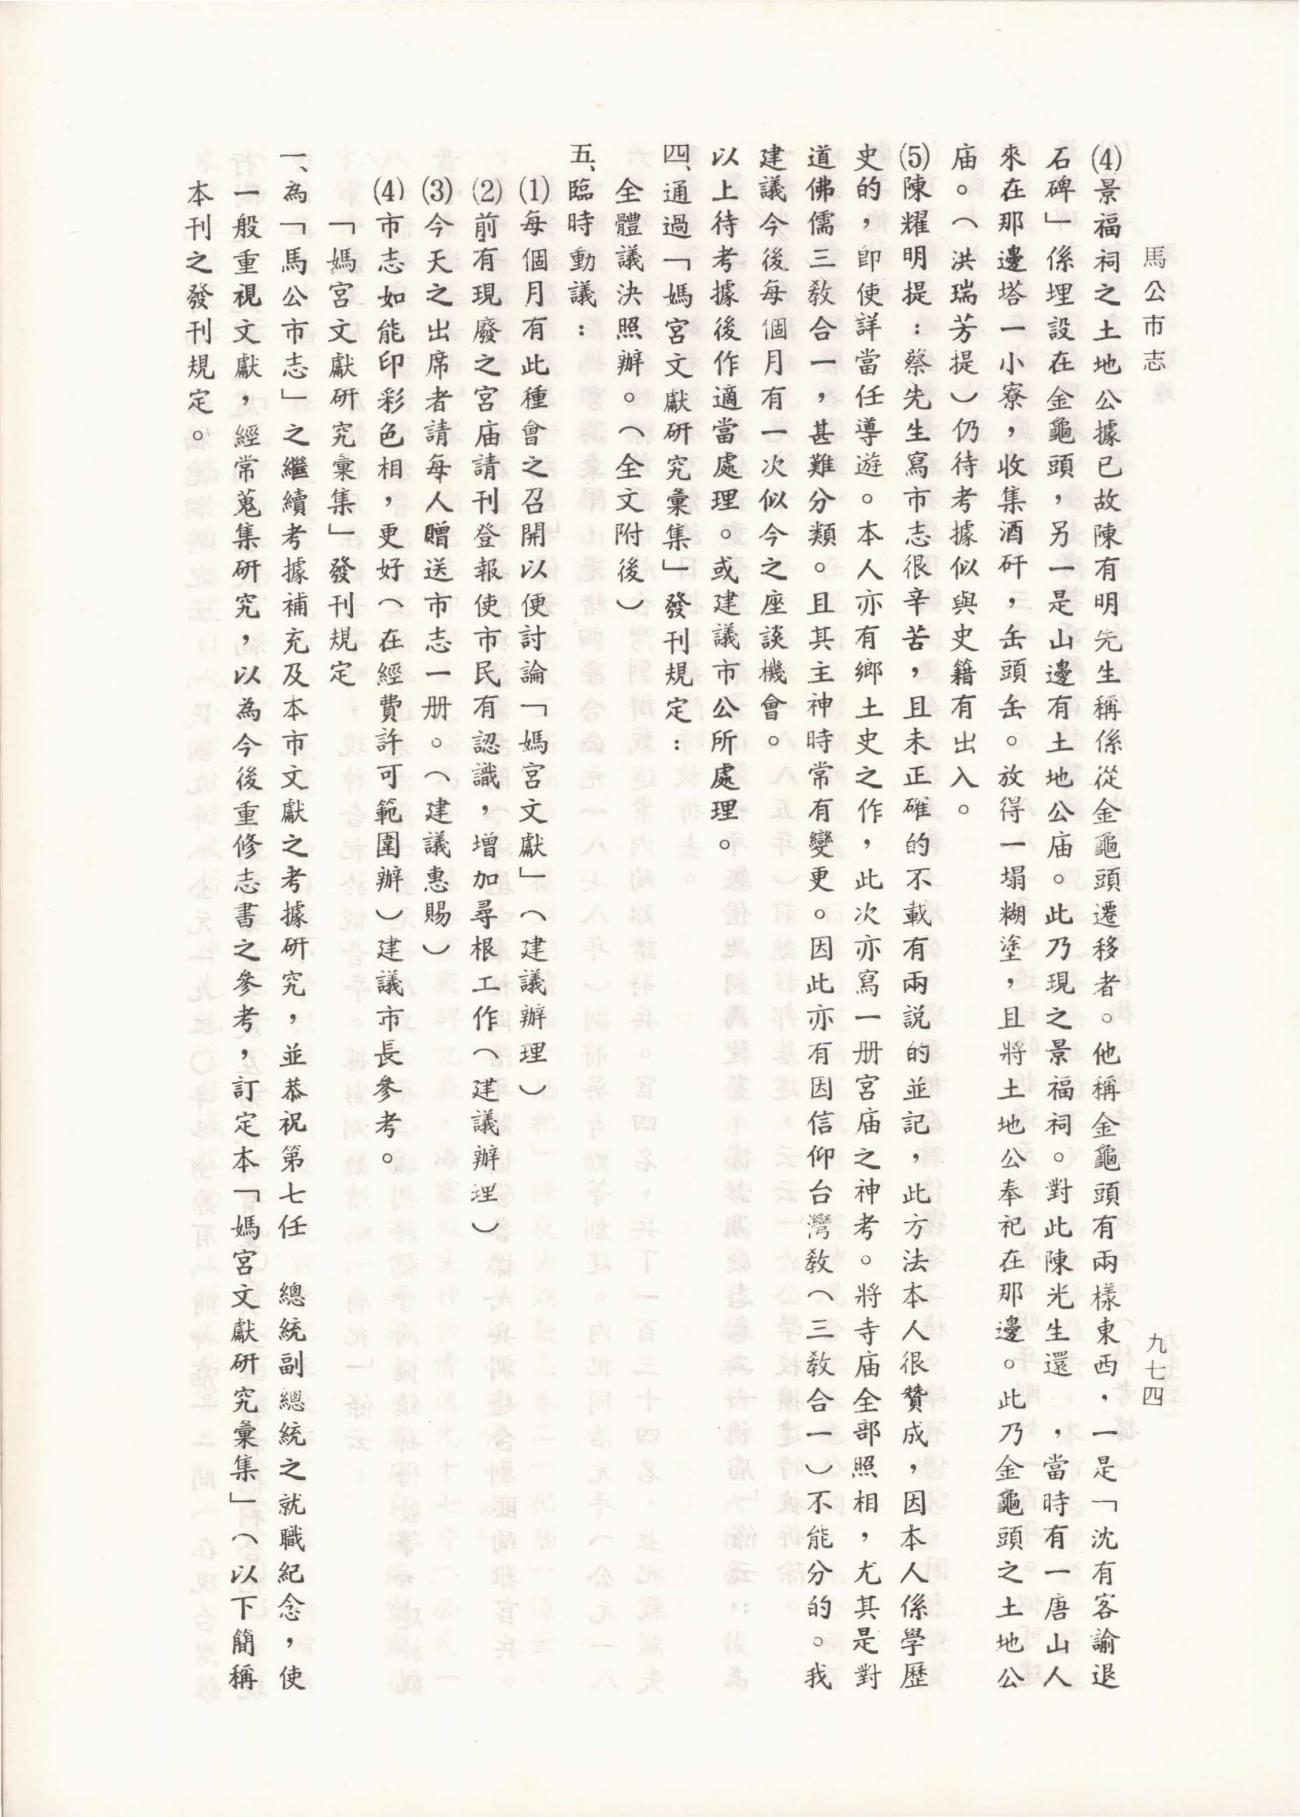 馬公市志
九七四
⑷景福祠之土地公據已故陳有明先生稱係從金龜頭遷移者。他稱金龜頭有兩樣東西，一是「沈有客諭退
石碑」係埋設在金龜頭，另一是山邊有土地公庙。此乃現之景福祠。對此陳光生還　，當時有一唐山人
來在那邊塔一小寮，收集酒矸，缶頭缶。放得一塌糊塗，且將土地公奉祀在那邊。此乃金龜頭之土地公
庙。（洪瑞芳提）仍待考據似與史籍有出入。
⑸陳耀明提：蔡先生寫市志很辛苦，且未正確的不載有兩說的並記，此方法本人很贊成，因本人係學歷
史的，即使詳當任導遊。本人亦有鄉土史之作，此次亦寫一册宮庙之神考。將寺庙全部照相，尤其是對
道佛儒三教合一，甚難分類。且其主神時常有變更。因此亦有因信仰台灣教（三教合一）不能分的。我
建議今後每個月有一次似今之座談機會。
以上待考據後作適當處理。或建議市公所處理。
四、通過「媽宮文獻研究彙集」發刊規定：
全體議決照辦。（全文附後）
五、臨時動議：
⑴每個月有此種會之召開以便討論「媽宮文獻」（建議辦理）
⑵前有現廢之宮庙請刊登報使市民有認識，增加尋根工作（建議辦理）
⑶今天之出席者請每人贈送市志一册。（建議惠賜）
⑷市志如能印彩色相，更好（在經費許可範圍辦）建議市長參考。
「媽宮文獻研究彙集」發刊規定
一、為「馬公市志」之繼續考據補充及本市文獻之考據研究，並恭祝第七任　總統副總統之就職紀念，使
一般重視文獻，經常蒐集研究，以為今後重修志書之參考，訂定本「媽宮文獻研究彙集」（以下簡稱
本刊之發刊規定。